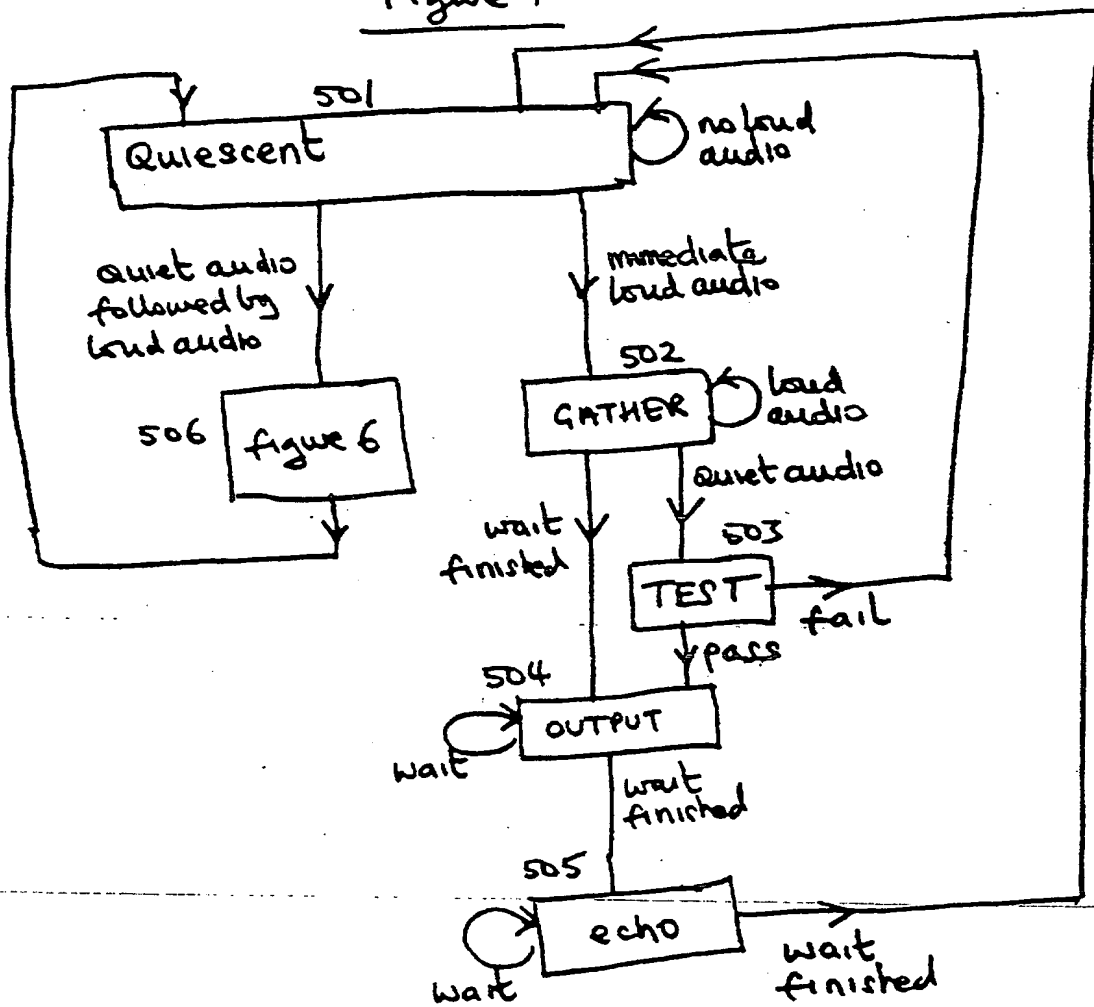 Figure
501
Quiescent
no loud
audio
Quiet audio
followed by
loud audio
immediate
loud audio
502
GATHER
loud
audio
506
figure 6
Quiet audio
wait
finished
503
TEST
fail
pass
504
OUTPUT
wait
wait
finished
505
echo
wait
wait
finished